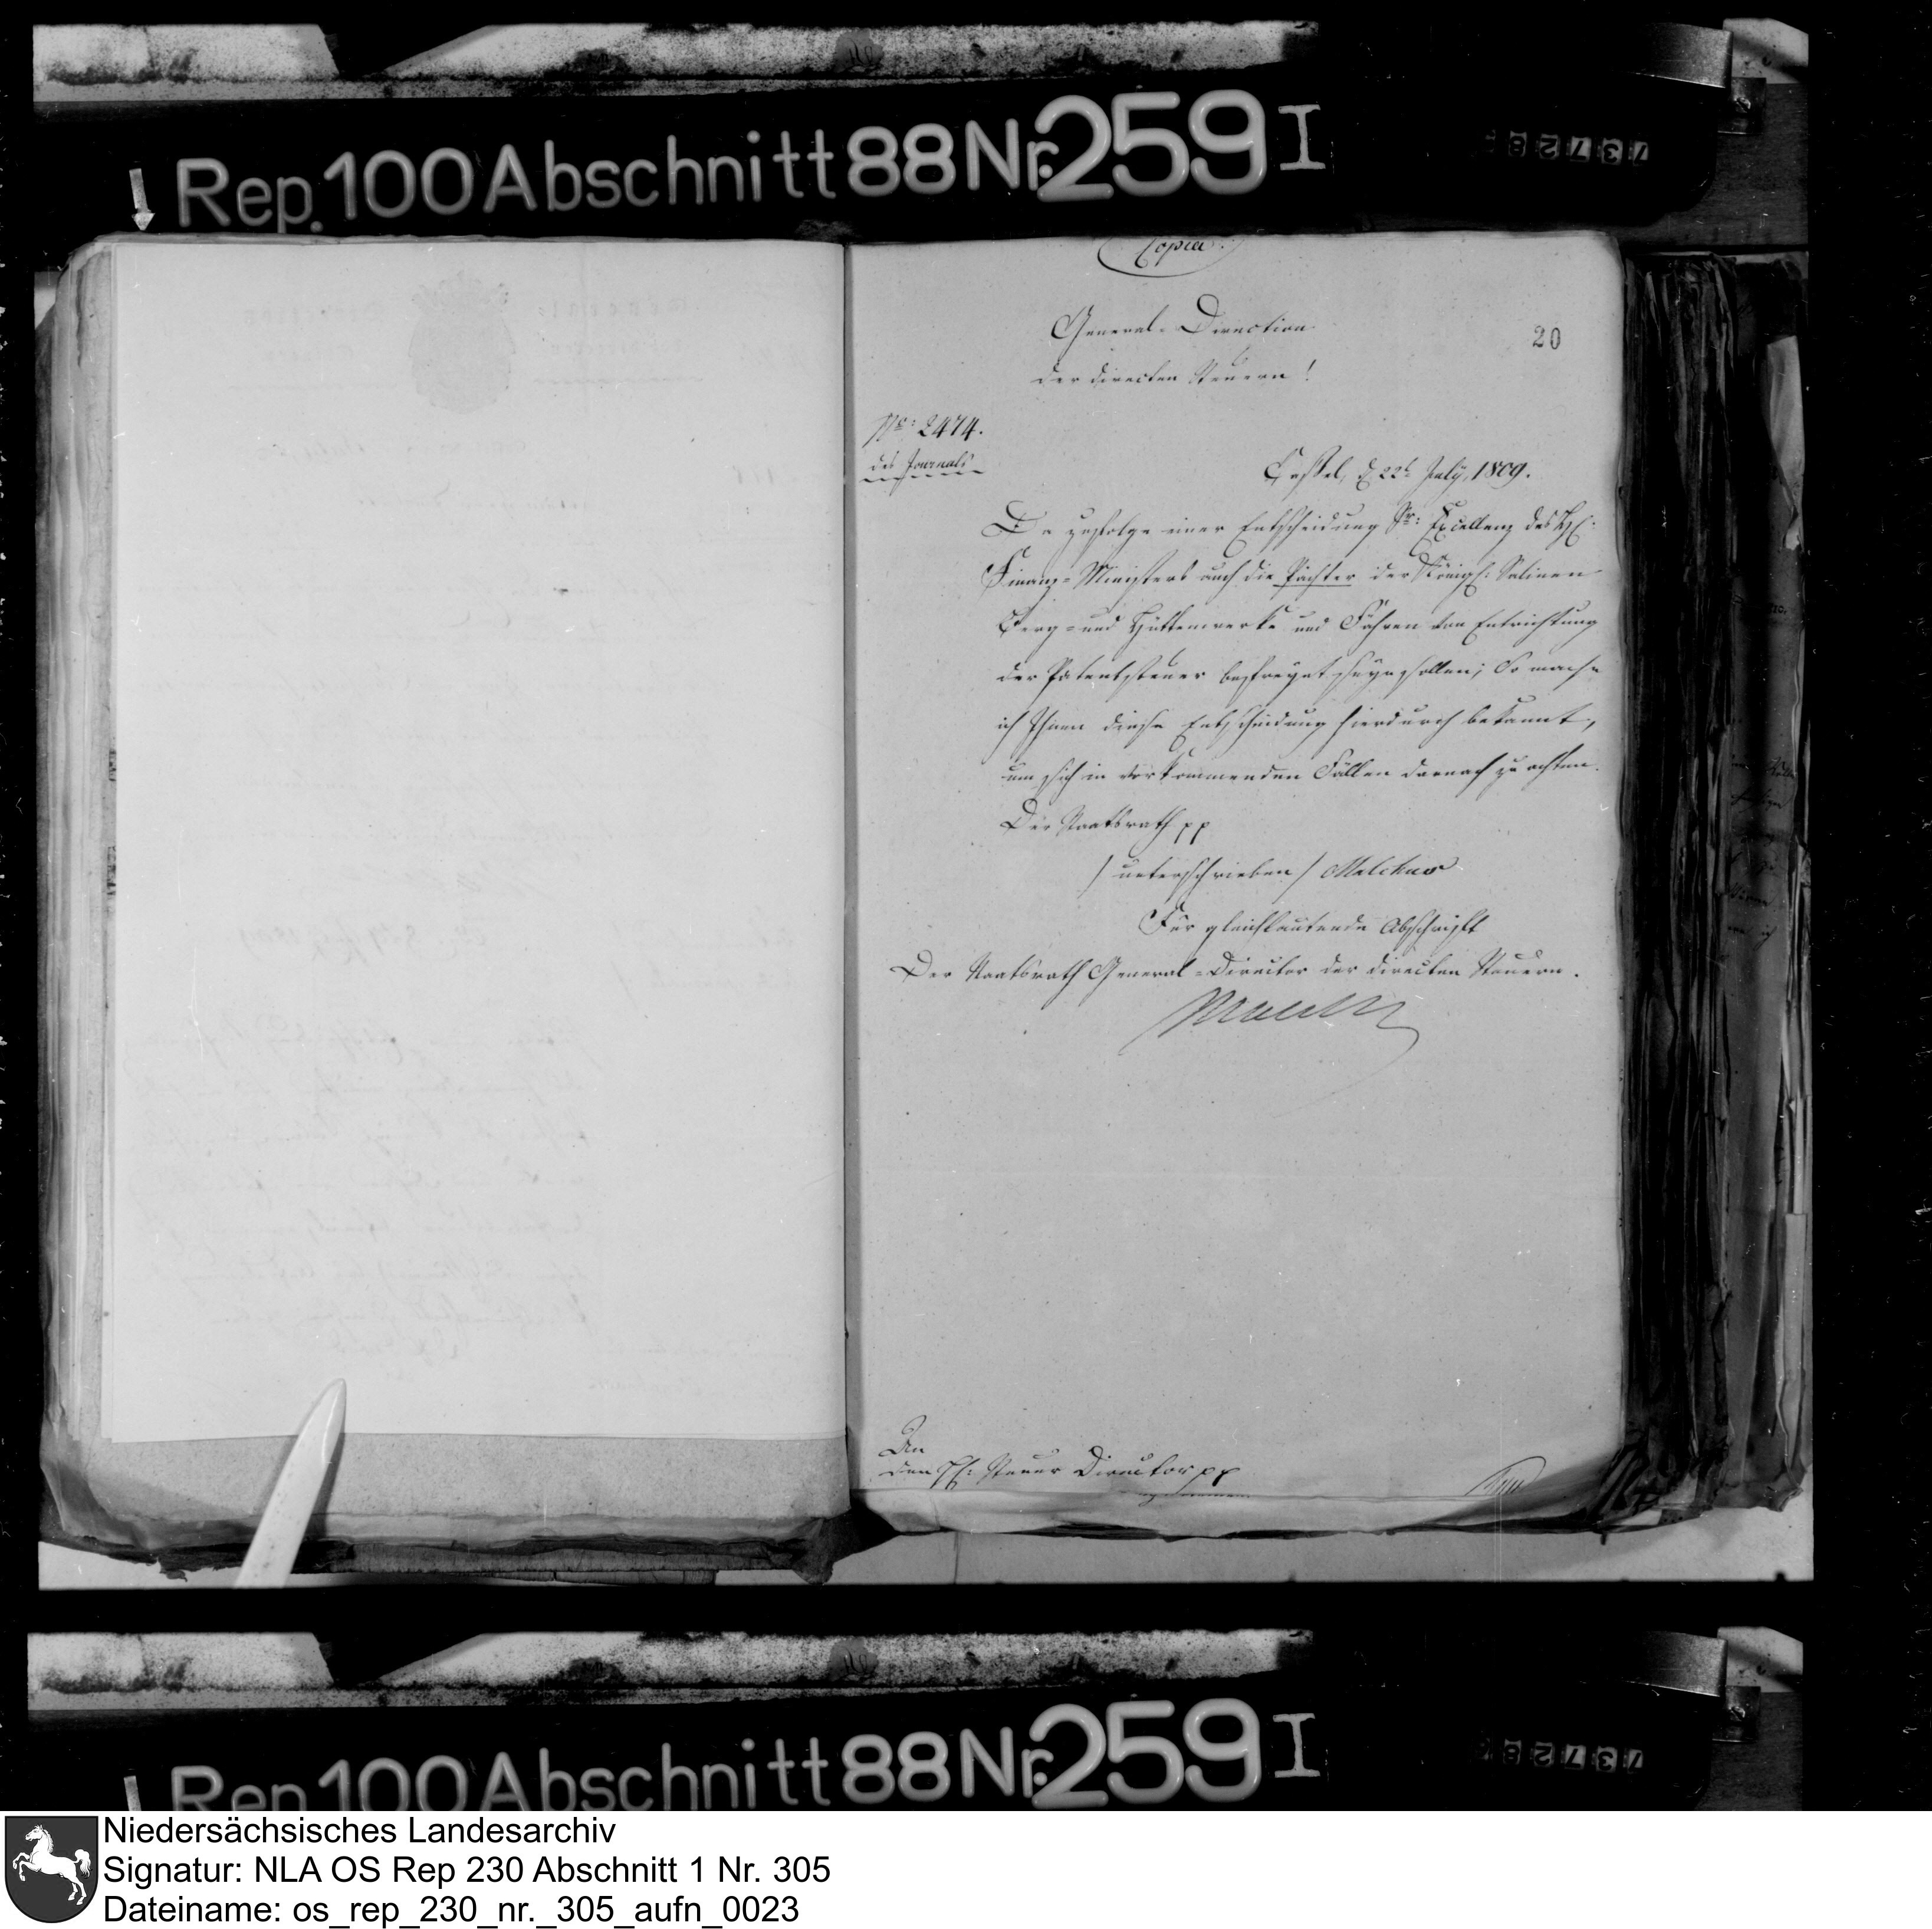 Rep. 100 Abschnitt 88 Nr. 259 I
73728
Copia
General-Direction
20
der directen Steuern!
No: 2474.
des Journals
Cassel, d 22t July, 1809.
Da zufolge einer Entscheidung Sr: Excellenz des H:
Finanz-Ministers auch die Pächter der Königl: Salinen
Berg- und Hüttenwerke und Fähren von Entrichtung
der Patentsteuer befreyet seyn sollen; So mache
ich Ihnen diese Entscheidung hierdurch bekannt,
um sich in vorkommenden Fällen darnach zu achten.
Der Staatsrath pp
/ unterschrieben / Malchus
Für gleichlautende Abschrift
Der Staatsrath General-Director der directen Steuern.
An
den H: Steuer Director pp
Rep. 100 Abschnitt 88 Nr. 259 I
73728
Niedersächsisches Landesarchiv
Signatur: NLA OS Rep 230 Abschnitt 1 Nr. 305
Dateiname: os_rep_230_nr._305_aufn_0023